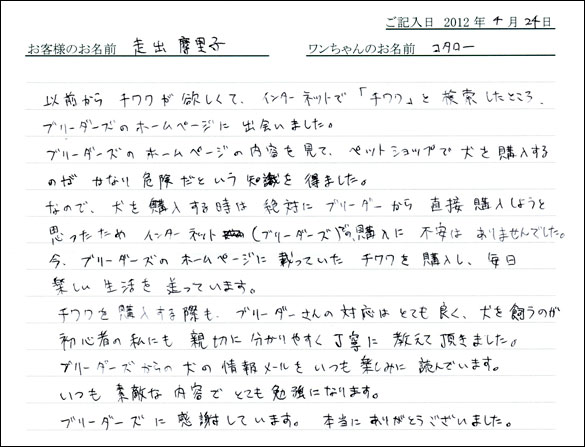 ご記入日 2012 年 4 月 24 日
お客様のお名前 走出 摩里子 ワンちゃんのお名前 コタロー
以前から チワワが欲しくて、インターネットで「チワワ」と検索したところ、
ブリーダーズのホームページに出会いました。
ブリーダーズのホームページの内容を見て、ペットショップで犬を購入する
のが かなり危険だという知識を得ました。
なので、犬を購入する時は絶対にブリーダーから直接購入しようと
思ったため インターネット(ブリーダーズ)での購入に不安はありませんでした。
今、ブリーダーズのホームページに載っていた チワワを購入し、毎日
楽しい生活を送っています。
チワワを購入する際も、ブリーダーさんの対応はとても良く、犬を飼うのが
初心者の私にも親切に分かりやすく丁寧に教えて頂きました。
ブリーダーズからの犬の情報メールをいつも楽しみに読んでいます。
いつも素敵な内容でとても勉強になります。
ブリーダーズに感謝しています。本当にありがとうございました。